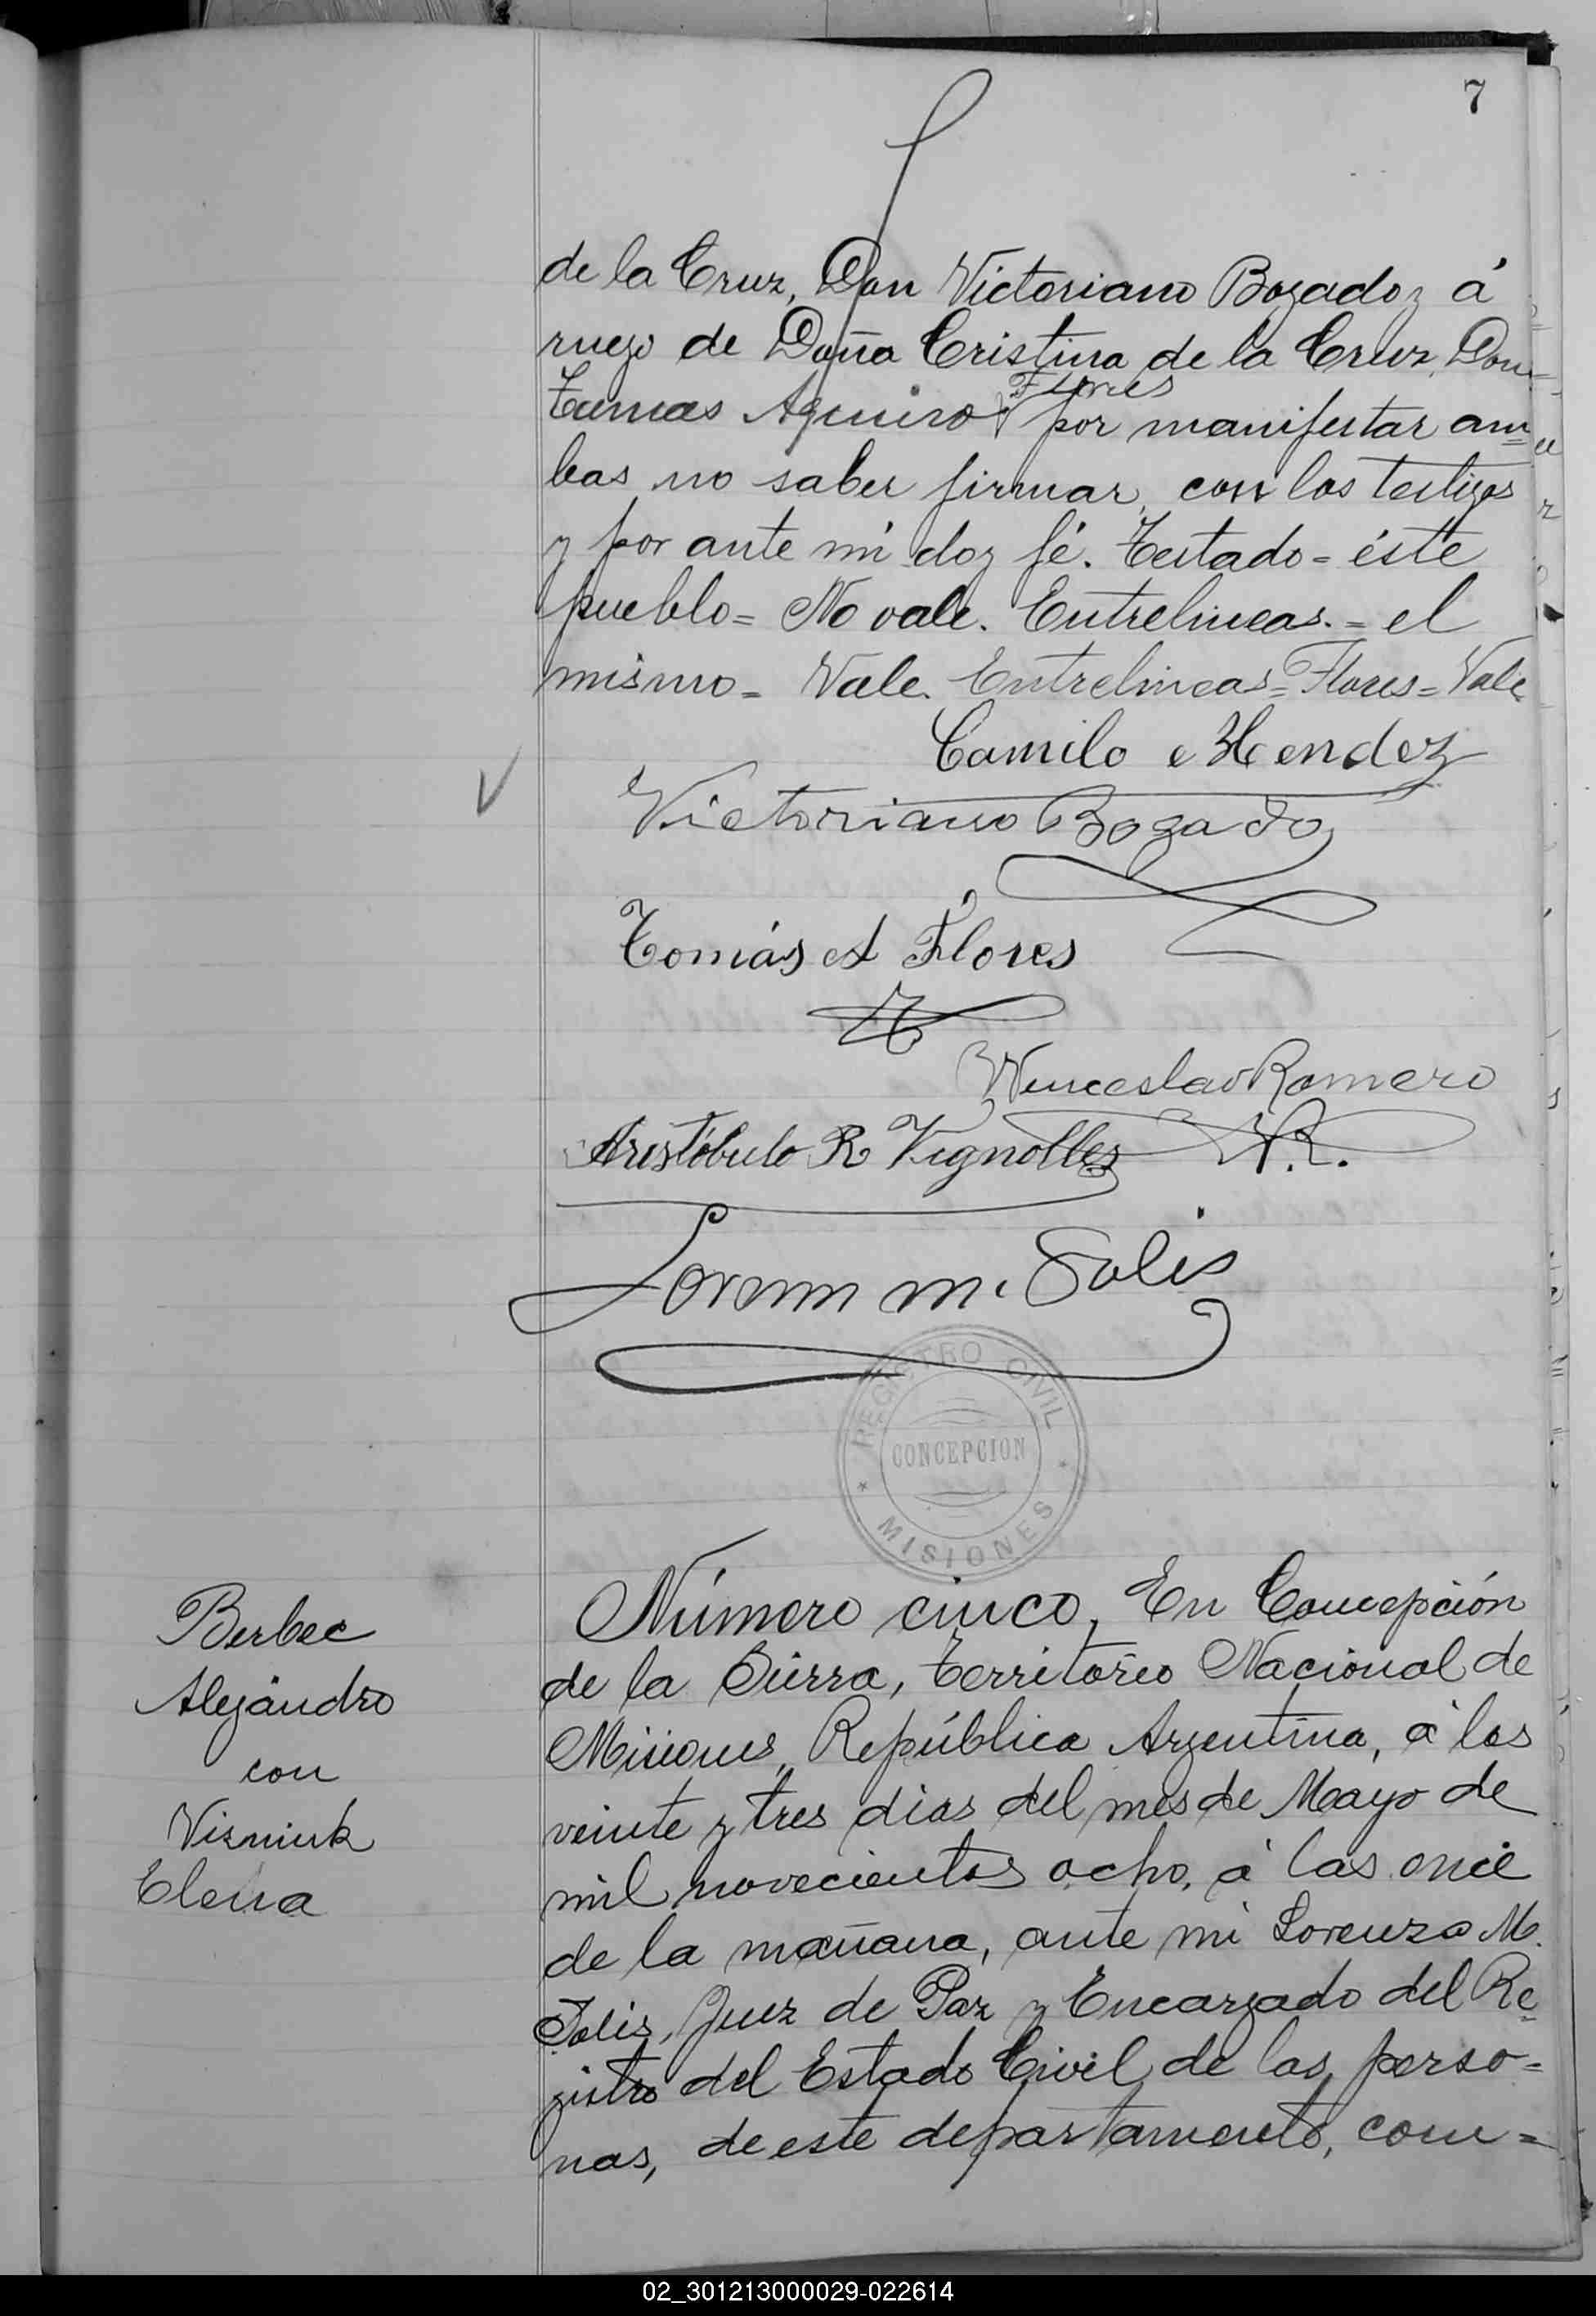 7
de la Cruz, Don Victoriano Bozado y á
ruego de Doña Cristina de la Cruz, Don
Flores
Tomas Aquino por manifestar am=
bas no saber firmar, con los testigos
y por ante mi doy fé. Testado = éste
pueblo = No vale. Entrelineas. = el
mismo = Vale. Entrelineas = Flores = Vale
Camilo Mendez
Victoriano Bozado
Tomás A Flores
Wenceslao Romero
Aristóbulo R Vignolles W.R.
Lorenzo M. Solis
REGISTRO CIVIL
CONCEPCION
MISIONES
Berbec
Alejandro
con
Visniuk
Elena
Número cinco, En Concepción
de la Sierra, Territorio Nacional de
Misiones, República Argentina, á los
veinte y tres dias del mes de Mayo de
mil novecientos ocho, á las once
de la mañana, ante mi Lorenzo M.
Solis, Juez de Paz y Encargado del Re=
gistro del Estado Civil de las perso=
nas, de este departamento, com=
02_301213000029-022614